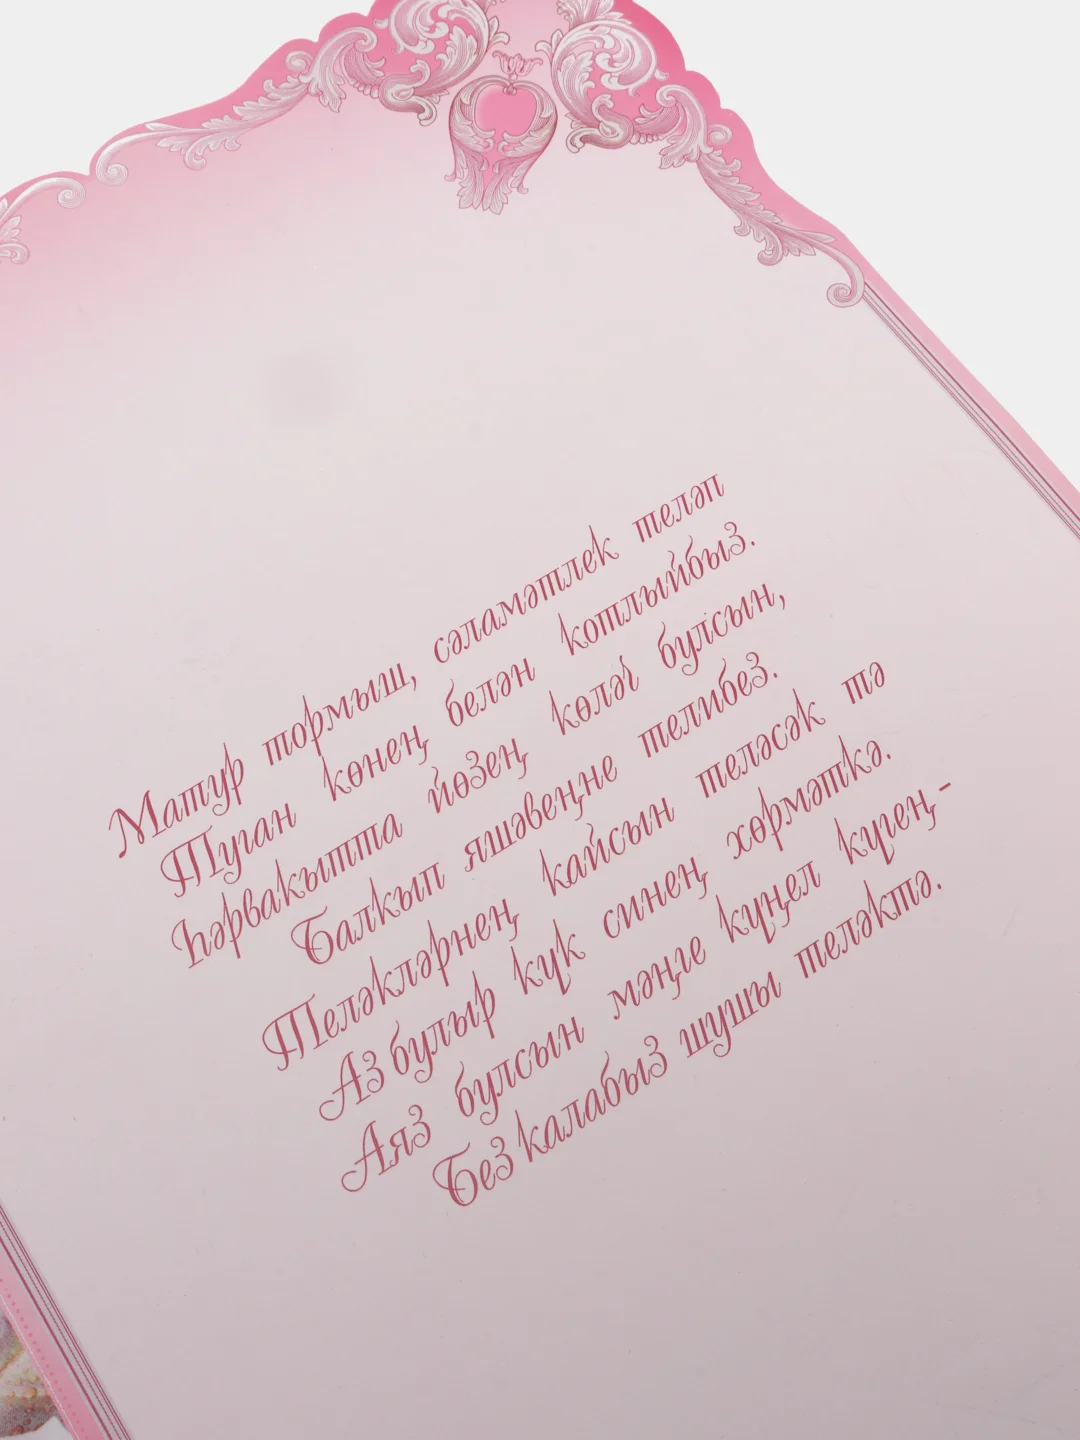 Матур тормыш, сәламәтлек теләп
Туган көнең белән котлыйбыз.
Һәрвакытта йөзең көләч булсын,
Балкып яшәвеңне телибез.
Теләкләрнең кайсын теләсәк тә
Аз булыр күк синең хөрмәткә.
Аяз булсын мәңге күңел күгең,-
Без калабыз шушы теләктә.